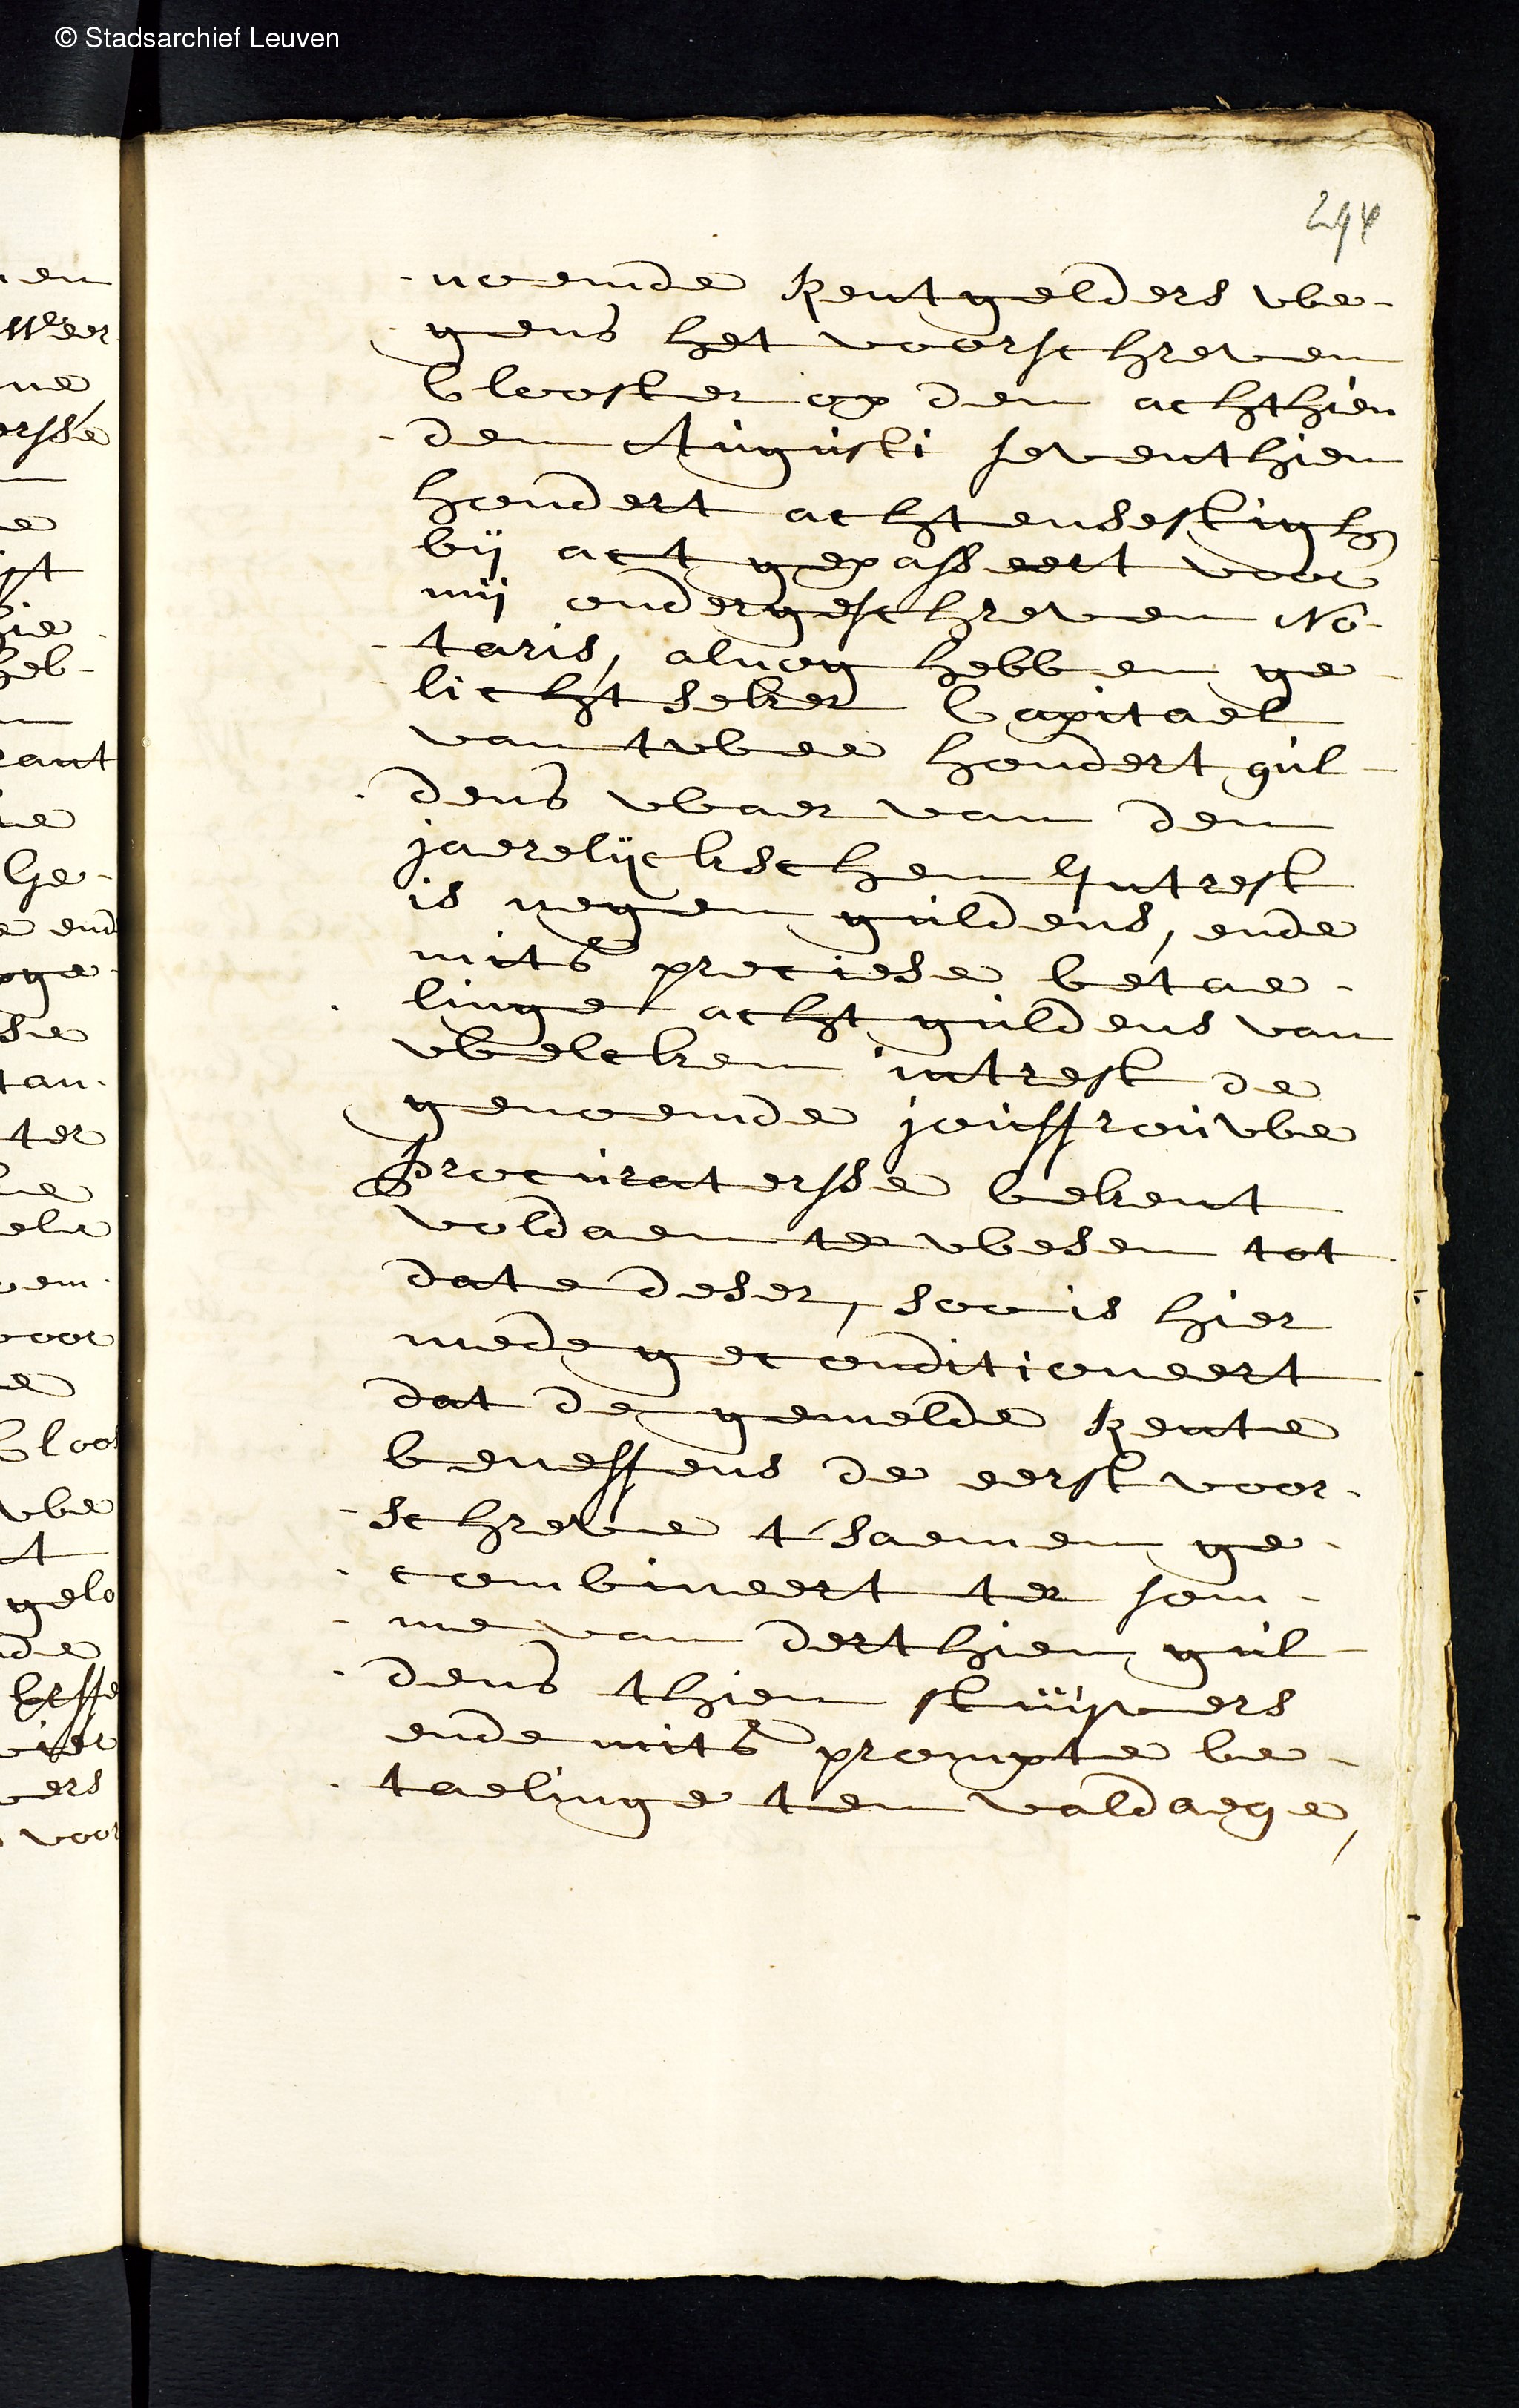 © Stadsarchief Leuven
294
-noemde Rentgelders we-
-gens het voorschreven
Clooster op den achthien
-den Augusti seventhien
hondert achtensestigh
bij act gepasseert voor
mij ondergeschreven No-
-taris, alnog hebben ge-
-licht seker Capitael
van twee hondert gul-
-dens waer van den
jaerelijckschen Intrest
is negen guldens, ende
mits preciese betae-
-linge acht guldens van
welcken intrest de
genoemde jouffrouwe
Procuratersse bekent
voldaen te wesen tot
date deser, soo is hier
mede geconditioneert
dat de gemelde Rente
beneffens de eerst voor-
-schreve t'saemen ge-
-combineert ter som-
-me van derthien gul-
-dens thien stuijvers
ende mits prompte be-
-taelinge ten valdaege,